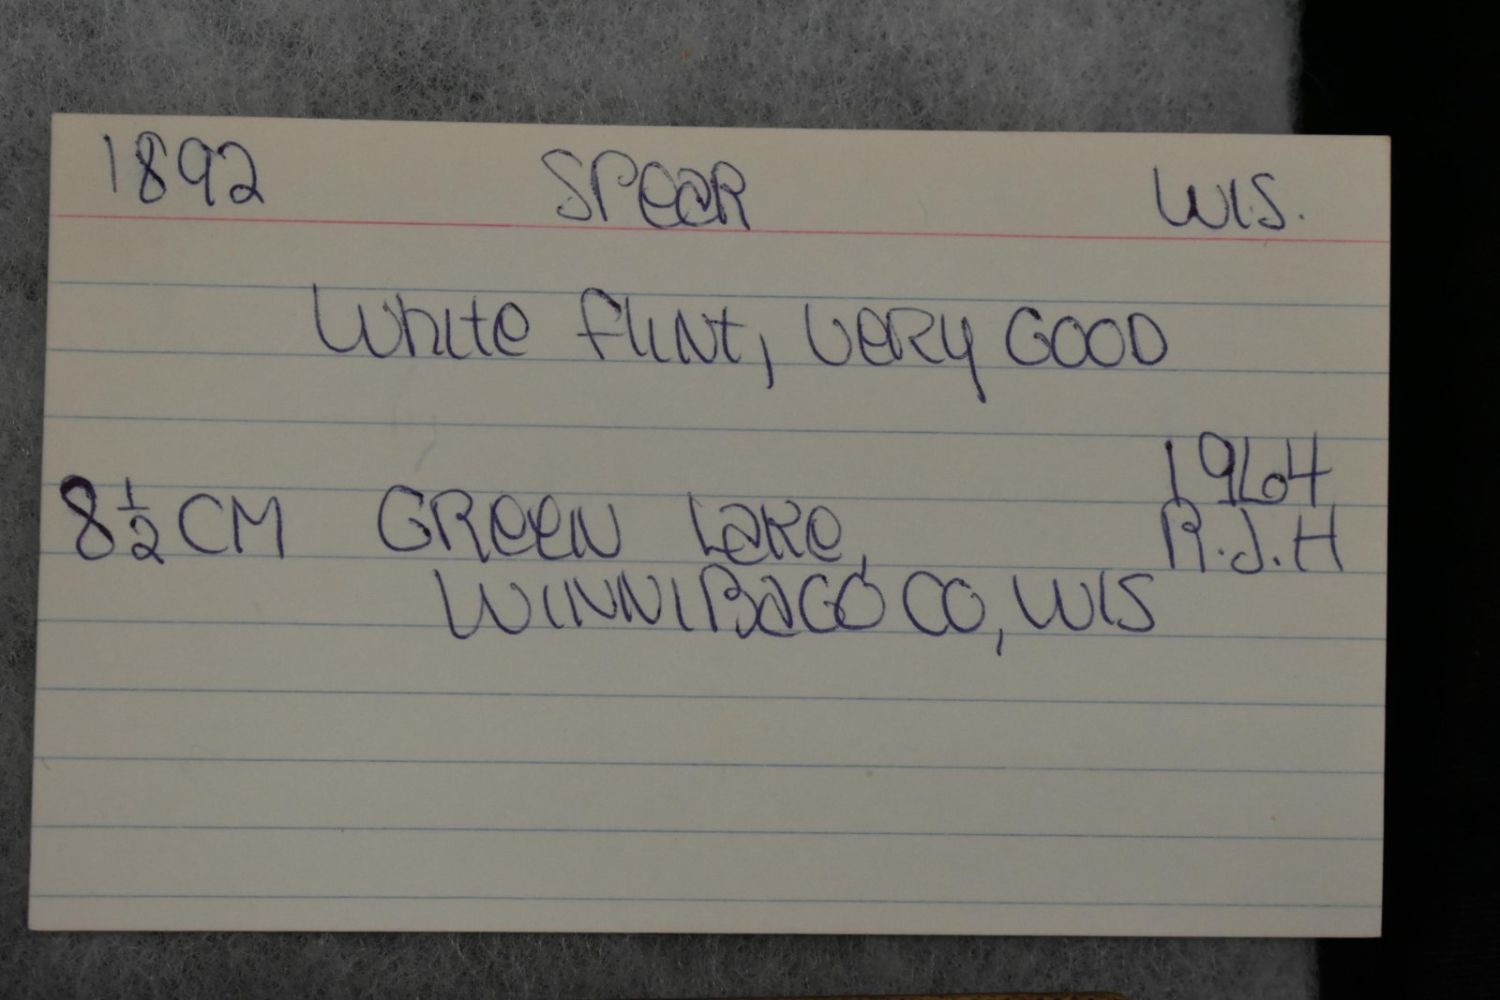 1892 SPeaR WIS.
White flint, VeRy GOOD
1964
8½ CM GReeN Lake, R.J.H
WINNIBaGO CO, WIS